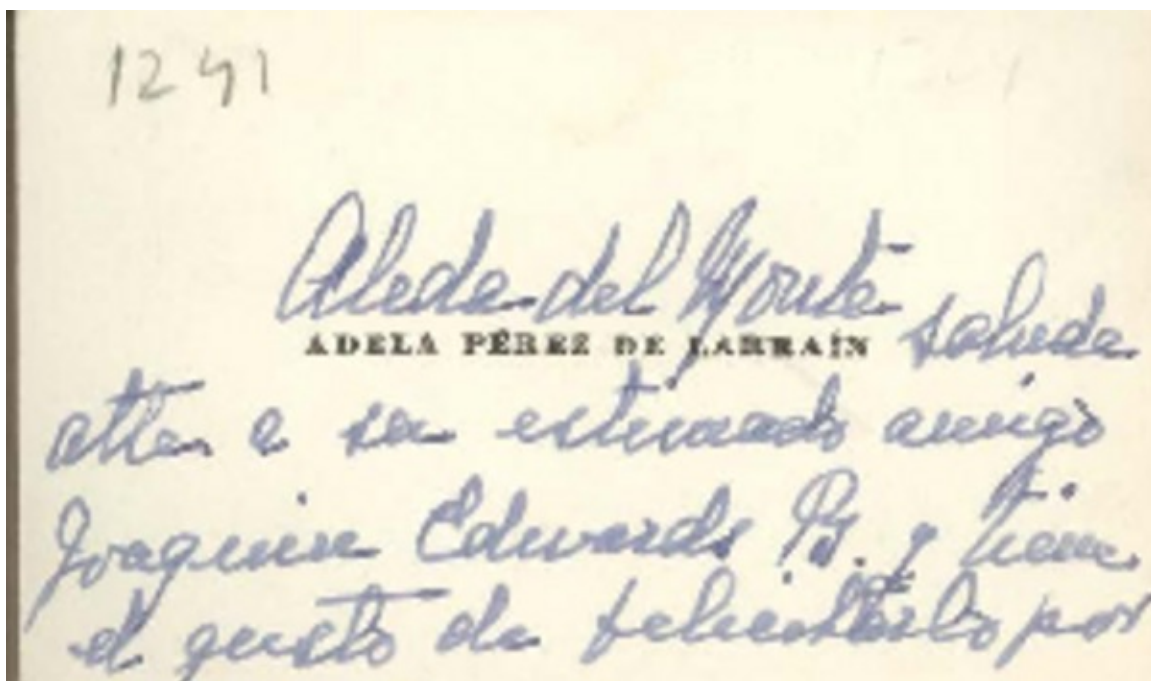 1241
Aleda del Monte
ADELA PÉREZ DE LARRAÍN saluda
atta a su estimado amigo
Joaquin Edwards B. y tiene
el gusto de felicitarlo por